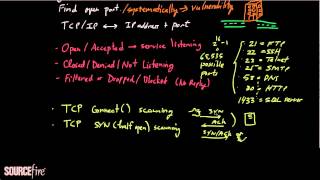 Find open port/systematically → vulnerability
TCP/IP ↔ IP address + port
- Open / Accepted → service listening
- Closed / Denied / Not Listening
- Filtered or Dropped / Blocked (No Reply)
2^16-1
65,535
possible
ports
21 = FTP
22 = SSH
23 = Telnet
25 = SMTP
53 = DNS
80 = HTTP
1433 = SQL Server
- TCP Connect() scanning
- TCP SYN (half open) scanning
SYN
ACK
SYN/Ack
S
SOURCEfire